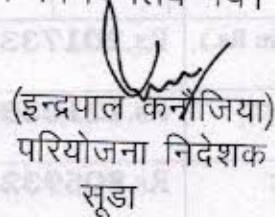 (इन्द्रपाल कनौजिया)
परियोजना निदेशक
सूडा